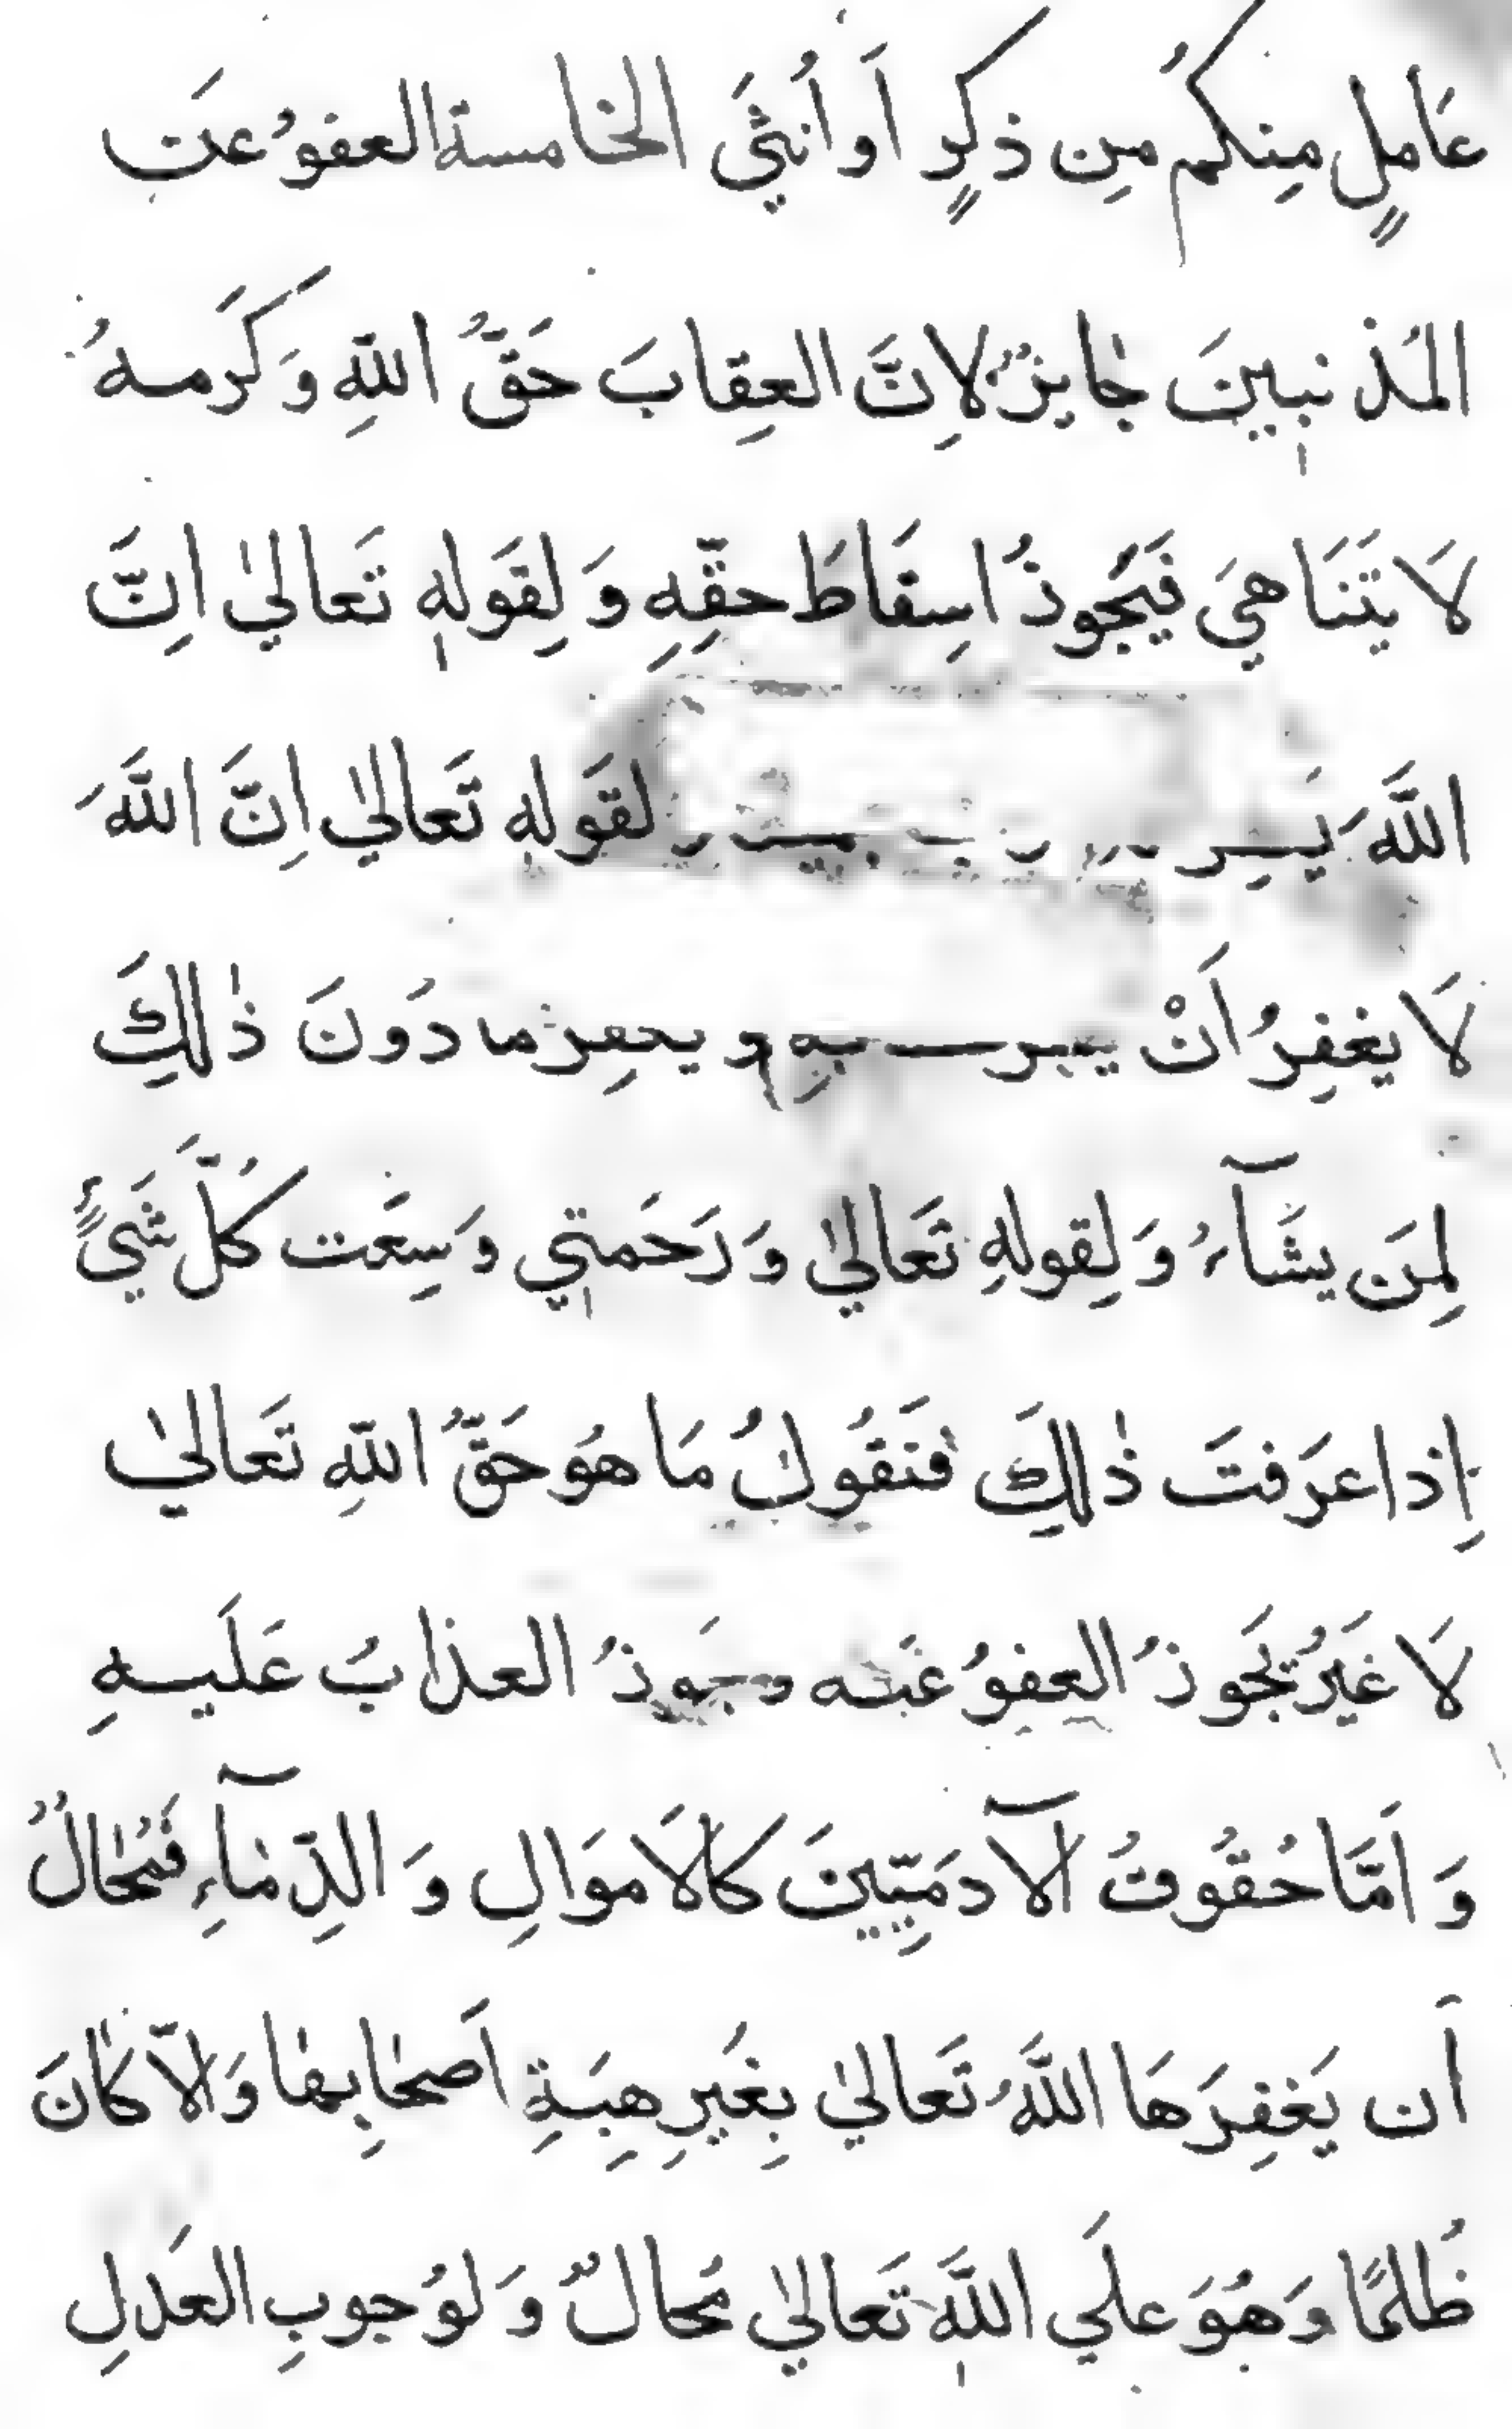 عَامِلٍ مِنكُم مِن ذكرٍ اَو اُنثَي الخامسة العفوُ عَن
المُذنبِينَ جٰايزٌ لاِنَّ العِقابَ حَقُّ اللّهِ وَكَرَمهُ
لَا يَتَنَاهيَ فَيَجُوزُ اسِقَاطَ حقّهِ وَ لِقَولهِ تَعاليٰ اِنَّ
اللَّهَ لقَولهِ تَعاليٰ اِنَّ اللَّهَ
لَا يغفِرُ اَنْ بِهِ و يغفِرُ ما دُونَ ذٰلِكَ
لِمَن يشَآءُ وَ لِقولهِ تَعاليٰ وَ رَحَمتِي وَسِعَت كُلَّ شَيءٍ
اِذا عرَفتَ ذٰلِكَ فَنَقُولُ مَا هُوَ حَقُّ اللّهِ تَعاليٰ
لَا غَيرُ يَجوزُ العفوُ عَنه ويجَوزُ العذابَ عَلَيهِ
وَ اَمَّا حُقُوقُ الآدمَيّينَ كالاَموَالِ وَ الدِّمٰآءِ فَمُحٰالٌ
اَن يَغفِرَهَا اللَّهُ تَعاليٰ بِغَيرِ هِبَةِ اَصحٰابِهٰا وَالّا كٰانَ
ظُلمًا وَهُوَ علَي اللَّهِ تَعاليٰ مُحالٌ وَ لوُجوبِ العَدلِ